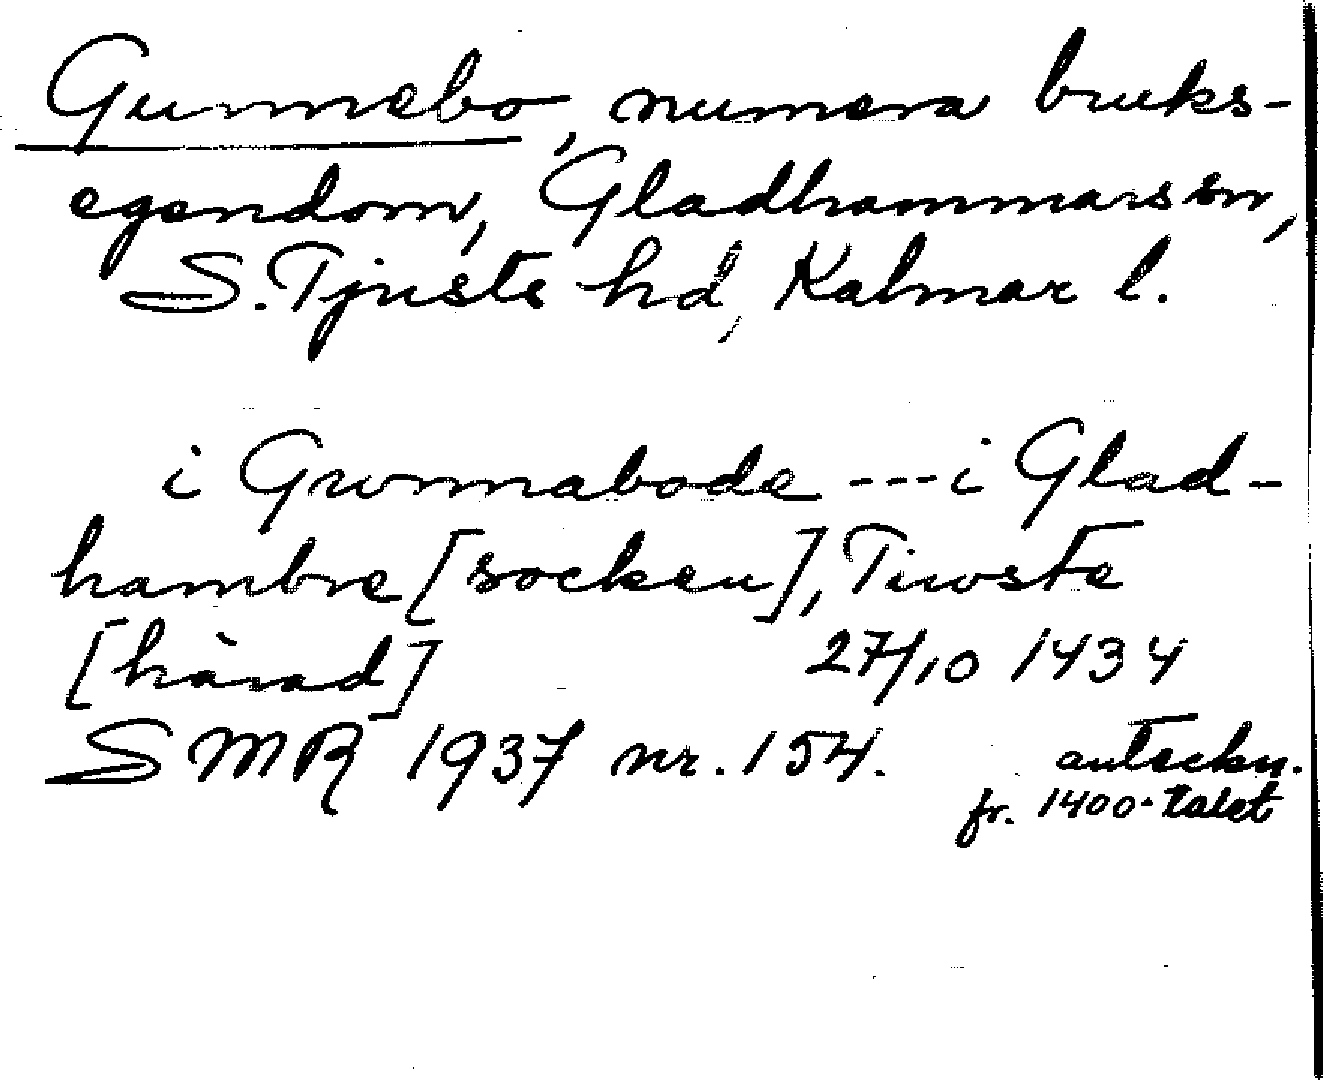 Gunnebo, numera bruks-
egendom, Gladhammars sn,
S. Tjusts hd, Kalmar l.
i Gwnnabode --- i Glad-
hambre [socken], Tiwste
[härad] 27/10 1434
SMR 1937 nr. 154. anteckn.
fr. 1400-talet